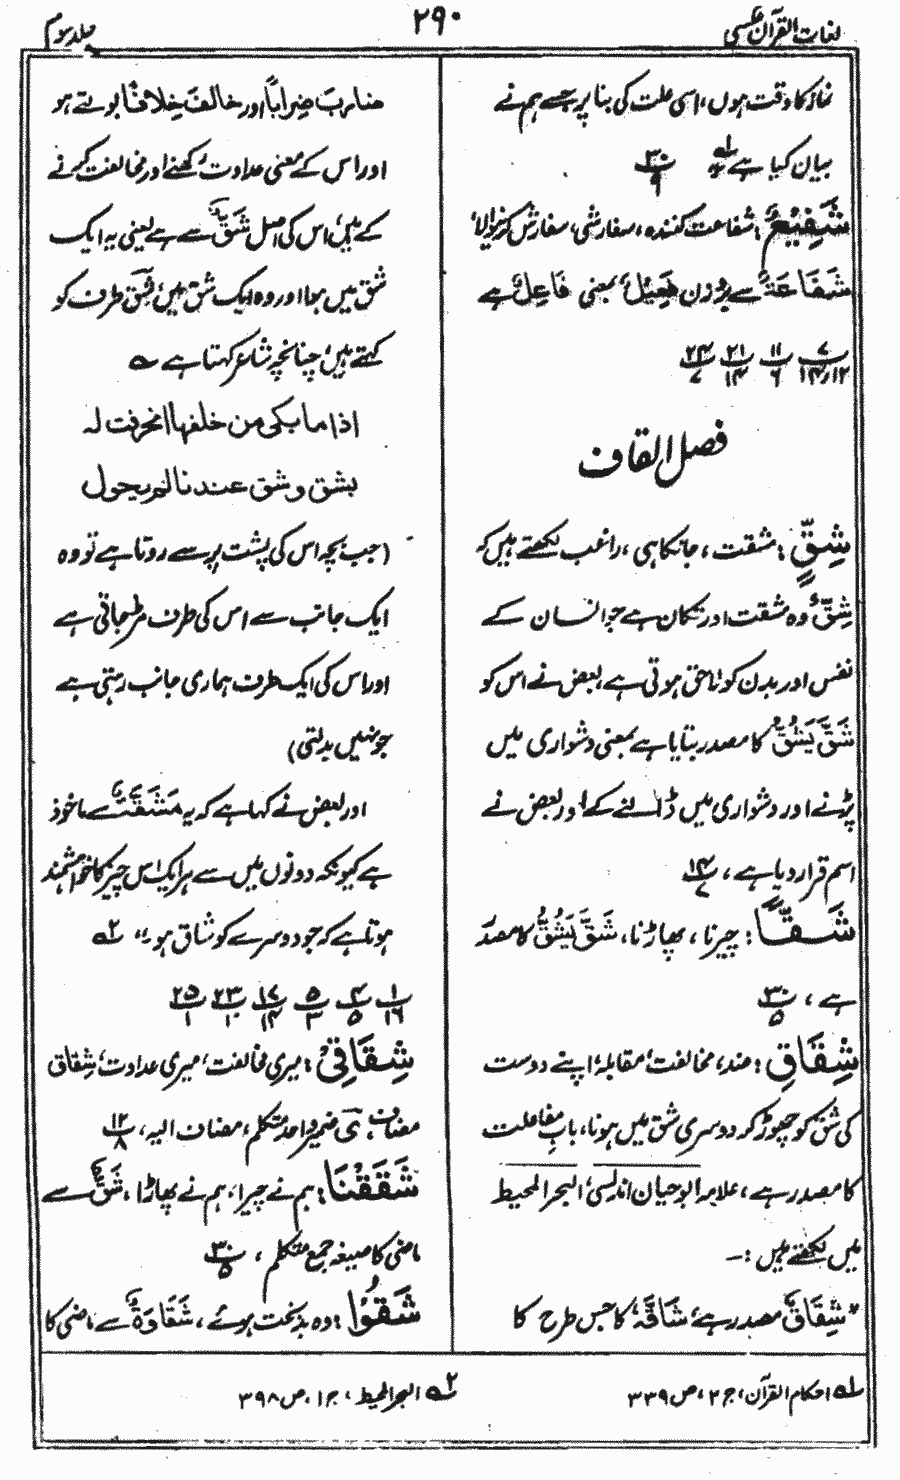 لغات القرآن عکسی
۲۹۰
جلد سوم
نماز کا وقت ہوں، اسی علت کی بنا پر جسے ہم نے
بیان کیا ہے ۱ ۳۰/۹
شَفِیْعٌ: شفاعت کنندہ، سفارشی، سفارش کرنیوالا،
شَفَاعَۃٌ سے بروزن فَعِیْلٌ بمعنی فَاعِلٌ ہے
۷/۱۲ر۱۴ ۱۱/۶ ۲۱/۱۴ ۲۴/۷
فصل القاف
شِقٍّ: مشقت، جانکاہی، راغب لکھتے ہیں کہ
شِقٌّ وہ مشقت اور تکان ہے جو انسان کے
نفس اور بدن کو لاحق ہوتی ہے، بعض نے اس کو
شَقَّ یَشُقُّ کا مصدر بتایا ہے بمعنی دشواری میں
پڑنے اور دشواری میں ڈالنے کے اور بعض نے
اسم قرار دیا ہے، ۱۴/۷
شَقًّا: چیرنا، پھاڑنا، شَقَّ یَشُقُّ کا مصدر
ہے، ۳۰/۵
شِقَاقٍ: ضد، مخالفت، مقابلہ، اپنے دوست
کی شق کو چھوڑ کر دوسری شق میں ہونا، باب مفاعلت
کا مصدر ہے، علامہ ابوحیان اندلسی، البحر المحیط
میں لکھتے ہیں :۔
"شِقَاقٌ مصدر ہے، شَاقَّہٗ کا جس طرح کا
ضَارَبَ ضِرَاباً اور خَالَفَ خِلَافاً بولتے ہو
اور اس کے معنی عداوت رکھنے اور مخالفت کرنے
کے ہیں، اس کی اصل شَقٌّ سے ہے یعنی یہ ایک
شق میں ہوا اور وہ ایک شق میں، شِق طرف کو
کہتے ہیں، چنانچہ شاعر کہتا ہے ؎
اذا ما بکی من خلفہا انحرفت لہ
بشق وشق عندنا لم یحول
(جب بچہ اس کی پشت پر سے روتا ہے تو وہ
ایک جانب سے اس کی طرف مڑ جاتی ہے
اور اس کی ایک طرف ہماری جانب رہتی ہے
جو نہیں بدلتی)
اور بعض نے کہا ہے کہ یہ مَشَقَّتٌ سے ماخوذ
ہے کیونکہ دونوں میں سے ہر ایک اس چیز کا خواہشمند
ہوتا ہے کہ جو دوسرے کو شاق ہو۔" ۲
۱/۱۶ ۲/۵ ۵/۳ ۱۷/۱۴ ۲۳/۱۰ ۲۵/۱
شِقَاقِیْ: میری مخالفت، میری عداوت، شِقاق
مضاف، ی ضمیر واحد متکلم، مضاف الیہ، ۱۲/۸
شَقَقْنَا: ہم نے چیرا، ہم نے پھاڑا، شَقٌّ سے
ماضی کا صیغہ جمع متکلم، ۳۰/۵
شَقُوْا: وہ بدبخت ہوئے، شَقَاوَۃٌ سے ماضی کا
۱ احکام القرآن، ج ۲، ص ۳۳۹
۲ البحر المحیط، ج ۱، ص ۳۹۸